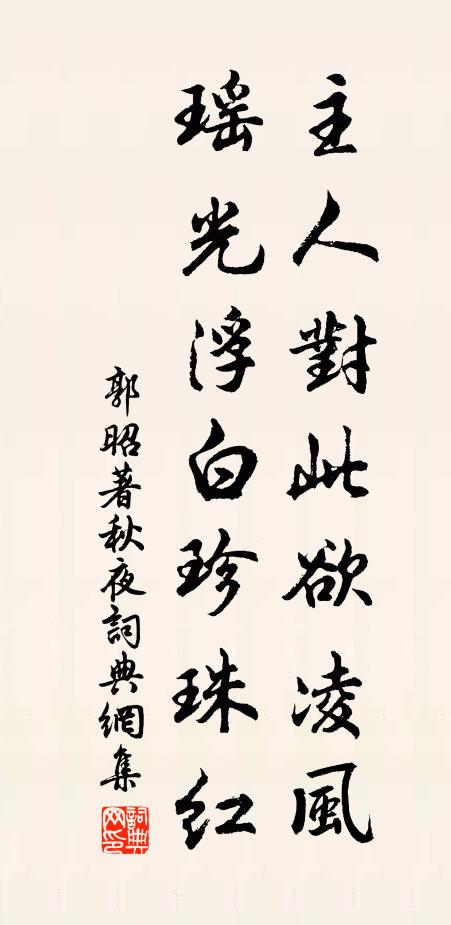 主人對此欲凌風
瑶光浮白珍珠红
郭昭著秋夜詞典網集
詞典網印